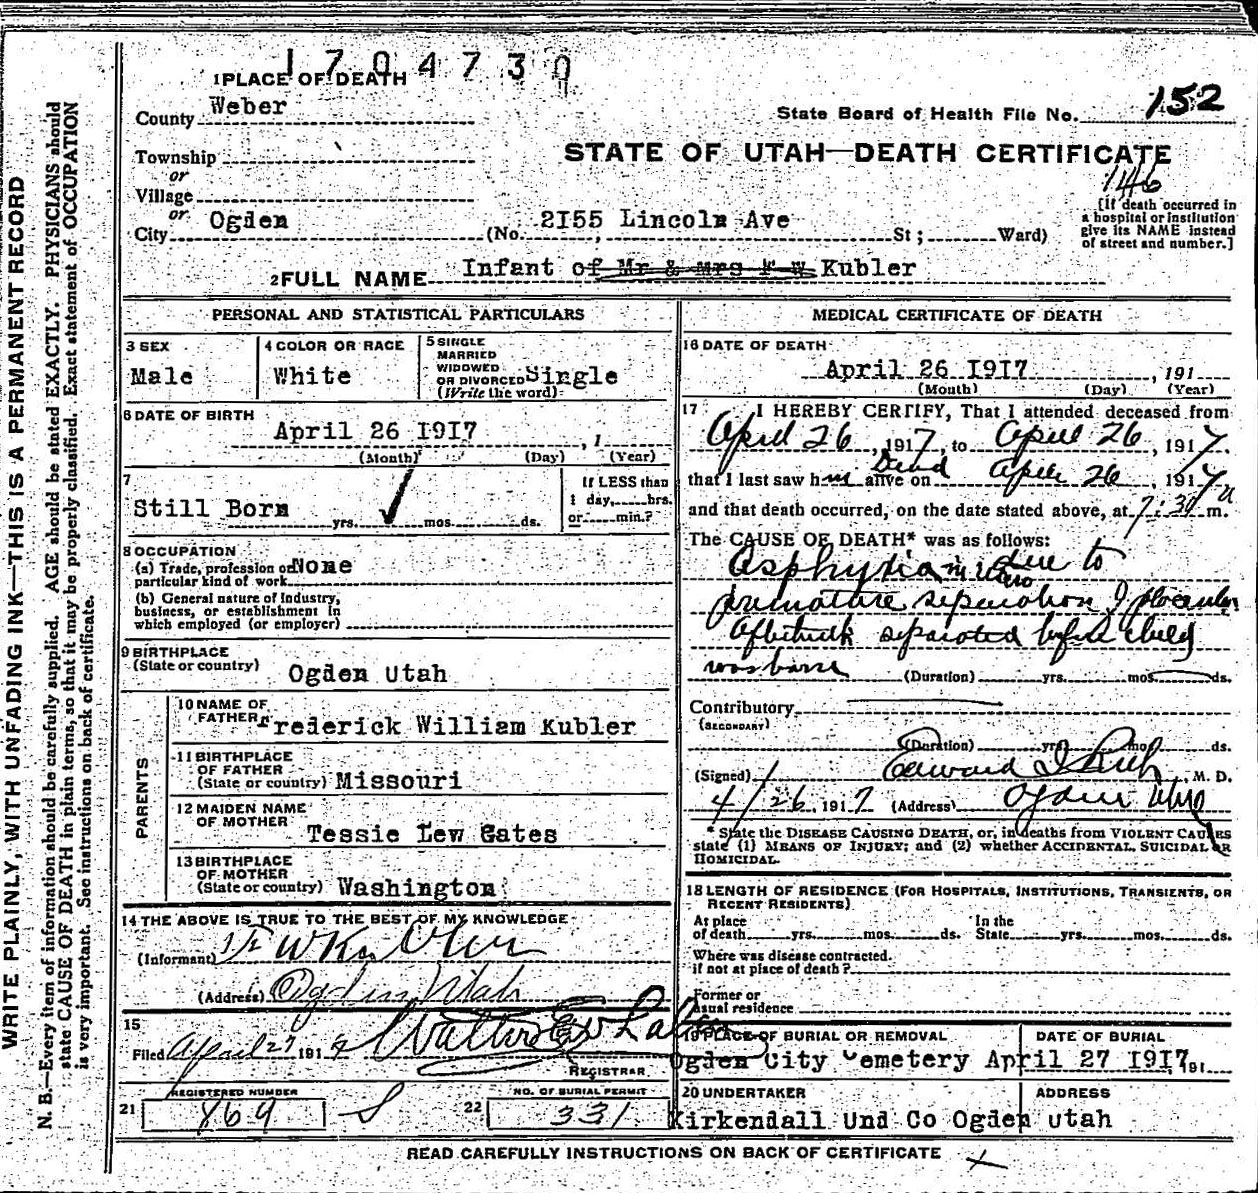 1704730
1 PLACE OF DEATH
County Weber
State Board of Health File No. 152
Township
or
STATE OF UTAH—DEATH CERTIFICATE
146
Village
or
City Ogden (No. 2155 Lincoln Ave St; Ward)
[If death occurred in
a hospital or institution
give its NAME instead
of street and number.]
2 FULL NAME Infant of Mr & Mrs F W Kubler
PERSONAL AND STATISTICAL PARTICULARS
3 SEX
Male
4 COLOR OR RACE
White
5 SINGLE
MARRIED
WIDOWED
OR DIVORCED Single
(Write the word)
6 DATE OF BIRTH
April 26 1917 , 1
(Month) (Day) (Year)
7
Still Born
yrs. mos. ds.
If LESS than
1 day, hrs.
or min.?
8 OCCUPATION
(a) Trade, profession or None
particular kind of work
(b) General nature of Industry,
business, or establishment in
which employed (or employer)
9 BIRTHPLACE
(State or country)
Ogden Utah
PARENTS
10 NAME OF
FATHER Frederick William Kubler
11 BIRTHPLACE
OF FATHER
(State or country) Missouri
12 MAIDEN NAME
OF MOTHER
Tessie Lew Gates
13 BIRTHPLACE
OF MOTHER
(State or country) Washington
14 THE ABOVE IS TRUE TO THE BEST OF MY KNOWLEDGE
(Informant)
(Address) Ogden Utah
15
Filed April 27 191
REGISTRAR
REGISTERED NUMBER
21 869 S
NO. OF BURIAL PERMIT
22 331
MEDICAL CERTIFICATE OF DEATH
16 DATE OF DEATH
April 26 1917 , 191
(Month) (Day) (Year)
17 I HEREBY CERTIFY, That I attended deceased from
April 26, 1917, to April 26, 1917
Dead
that I last saw him alive on April 26, 1917
and that death occurred, on the date stated above, at 7:30 a m.
The CAUSE OF DEATH* was as follows:
Asphyxia in utero due to
premature separation of placenta
Afterbirth separated before child
was born (Duration) yrs. mos. ds.
Contributory
(SECONDARY)
(Duration) yrs. mo. ds.
(Signed) Edward I Rich, M. D.
4/26 1917 (Address) Ogden Utah
* State the DISEASE CAUSING DEATH, or, in deaths from VIOLENT CAUSES
state (1) MEANS OF INJURY; and (2) whether ACCIDENTAL, SUICIDAL OR
HOMICIDAL.
18 LENGTH OF RESIDENCE (FOR HOSPITALS, INSTITUTIONS, TRANSIENTS, OR
RECENT RESIDENTS)
At place
of death yrs. mos. ds.
In the
State yrs. mos. ds.
Where was disease contracted.
if not at place of death?
Former or
usual residence
19 PLACE OF BURIAL OR REMOVAL
Ogden City Cemetery
DATE OF BURIAL
April 27 1917, 191
20 UNDERTAKER
Kirkendall Und Co
ADDRESS
Ogden utah
READ CAREFULLY INSTRUCTIONS ON BACK OF CERTIFICATE
WRITE PLAINLY, WITH UNFADING INK—THIS IS A PERMANENT RECORD
N. B.—Every item of information should be carefully supplied. AGE should be stated EXACTLY. PHYSICIANS should
state CAUSE OF DEATH in plain terms, so that it may be properly classified. Exact statement of OCCUPATION
is very important. See instructions on back of certificate.